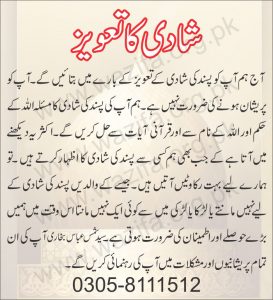 شادی کا تعویز
آج ہم آپ کو پسند کی شادی کے تعویز کے بارے میں بتائیں گے۔ آپ کو
پریشان ہونے کی ضرورت نہیں ہے۔ ہم آپ کی پسند کی شادی کا مسئلہ اللہ کے
حکم اور اللہ کے نام سے اور قرآنی آیات سے حل کریں گے۔ اکثر یہ دیکھنے
میں آتا ہے کے جب بھی ہم کسی سے پسند کی شادی کا اظہار کرتے ہیں۔ تو
ہمارے لیے بہت رکاوٹیں آتیں ہیں۔ جیسے کے والدیں پسند کی شادی کے
لیے نہیں مانتے یا لڑکا یا لڑکی میں سے کوئی ایک نہیں مانتا اس وقت میں ہمیں
بڑے حوصلے اور اطمینان کی ضرورت ہوتی ہے۔ سید شمس عباس بخاری آپ کی ان
تمام پریشانیوں اور مشکلات میں آپ کی رہنمائی کریں گے۔
0305-8111512